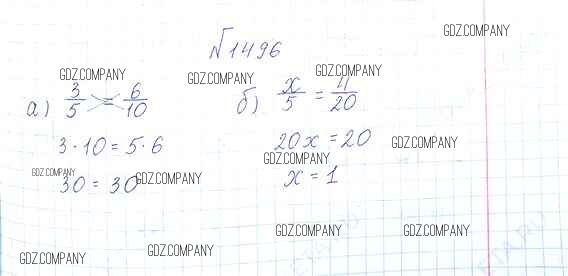 GDZ.COMPANY
№1496
GDZ.COMPANY GDZ.COMPANY GDZ.COMPANY
а) 3/5 = 6/10 б) x/5 = 4/20
3·10 = 5·6 20x = 20 GDZ.COMPANY
GDZ.COMPANY
30 = 30 x = 1
GDZ.COMPANY GDZ.COMPANY
GDZ.COMPANY GDZ.COMPANY
GDZ.COMPANY GDZ.COMPANY